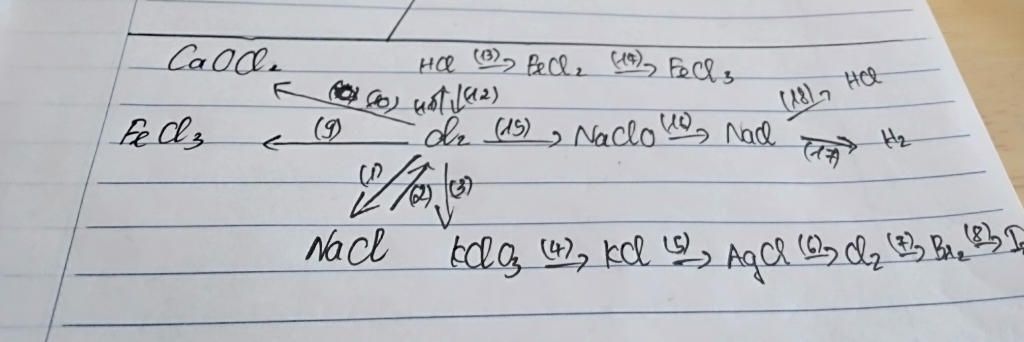 CaOCl₂ HCl (13)→ FeCl₂ (14)→ FeCl₃
(10) (11)↑↓(12) (18)→ HCl
FeCl₃ ←(9) Cl₂ (15)→ NaClO (16)→ NaCl (17)→ H₂
(1) (2) (3)
NaCl KClO₃ (4)→ KCl (5)→ AgCl (6)→ Cl₂ (7)→ Br₂ (8)→ I₂